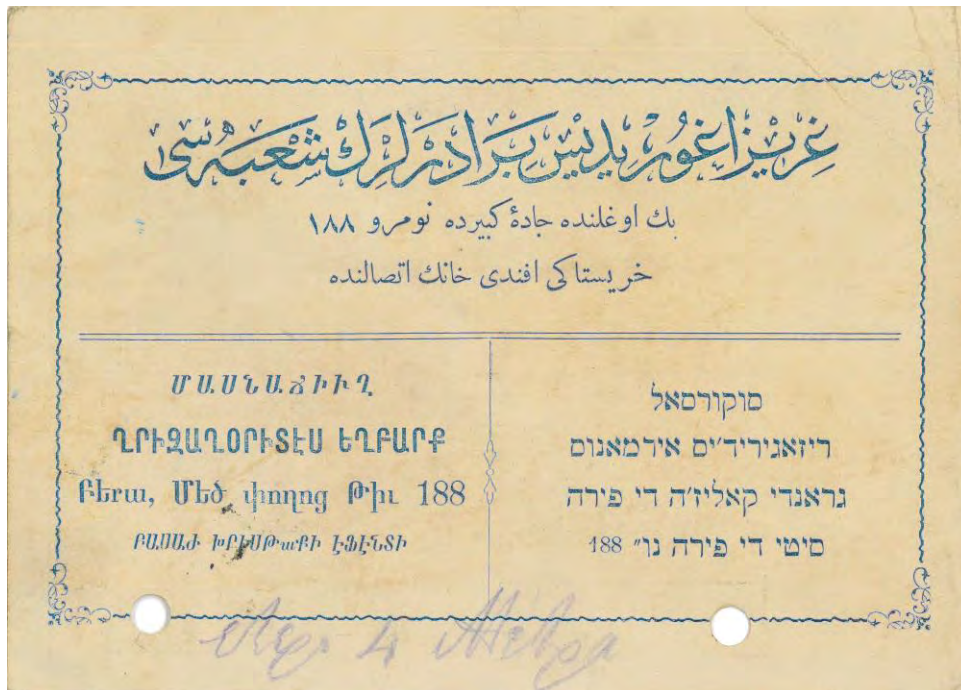 غريزاغوريديس برادرلرك شعبه سى
بك اوغلنده جادۀ كبيرده نومرو ١٨٨
خريستاكى افندى خانك اتصالنده
ՄԱՍՆԱՃԻՒՂ
ՂՐԻԶԱՂՕՐԻՏԷՍ ԵՂԲԱՐՔ
Բերա, Մեծ փողոց Թիւ 188
ԲԱՍԱԺ ԽՐԻՍԹաՔԻ ԷՖԷՆՏԻ
סוקורסאל
ריזאגיריד׳יס אירמאנוס
גראנדי קאליז׳ה די פירה
סיטי די פירה נו״ 188